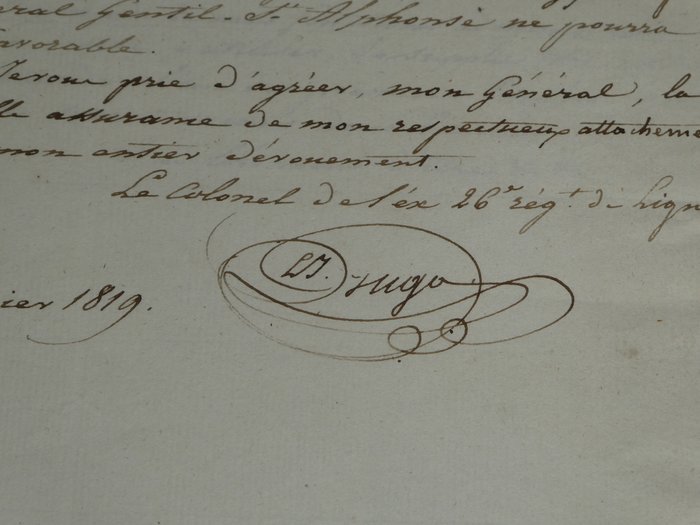 eral Gentil-St Alphonse ne pourra
avorable.
Je vous prie d'agréer, mon Général, la
lle assurance de mon respectueux attacheme
mon entier dévouement.
Le Colonel de l'éx 26e régt. de Lign
LJ. hugo
ier 1819.